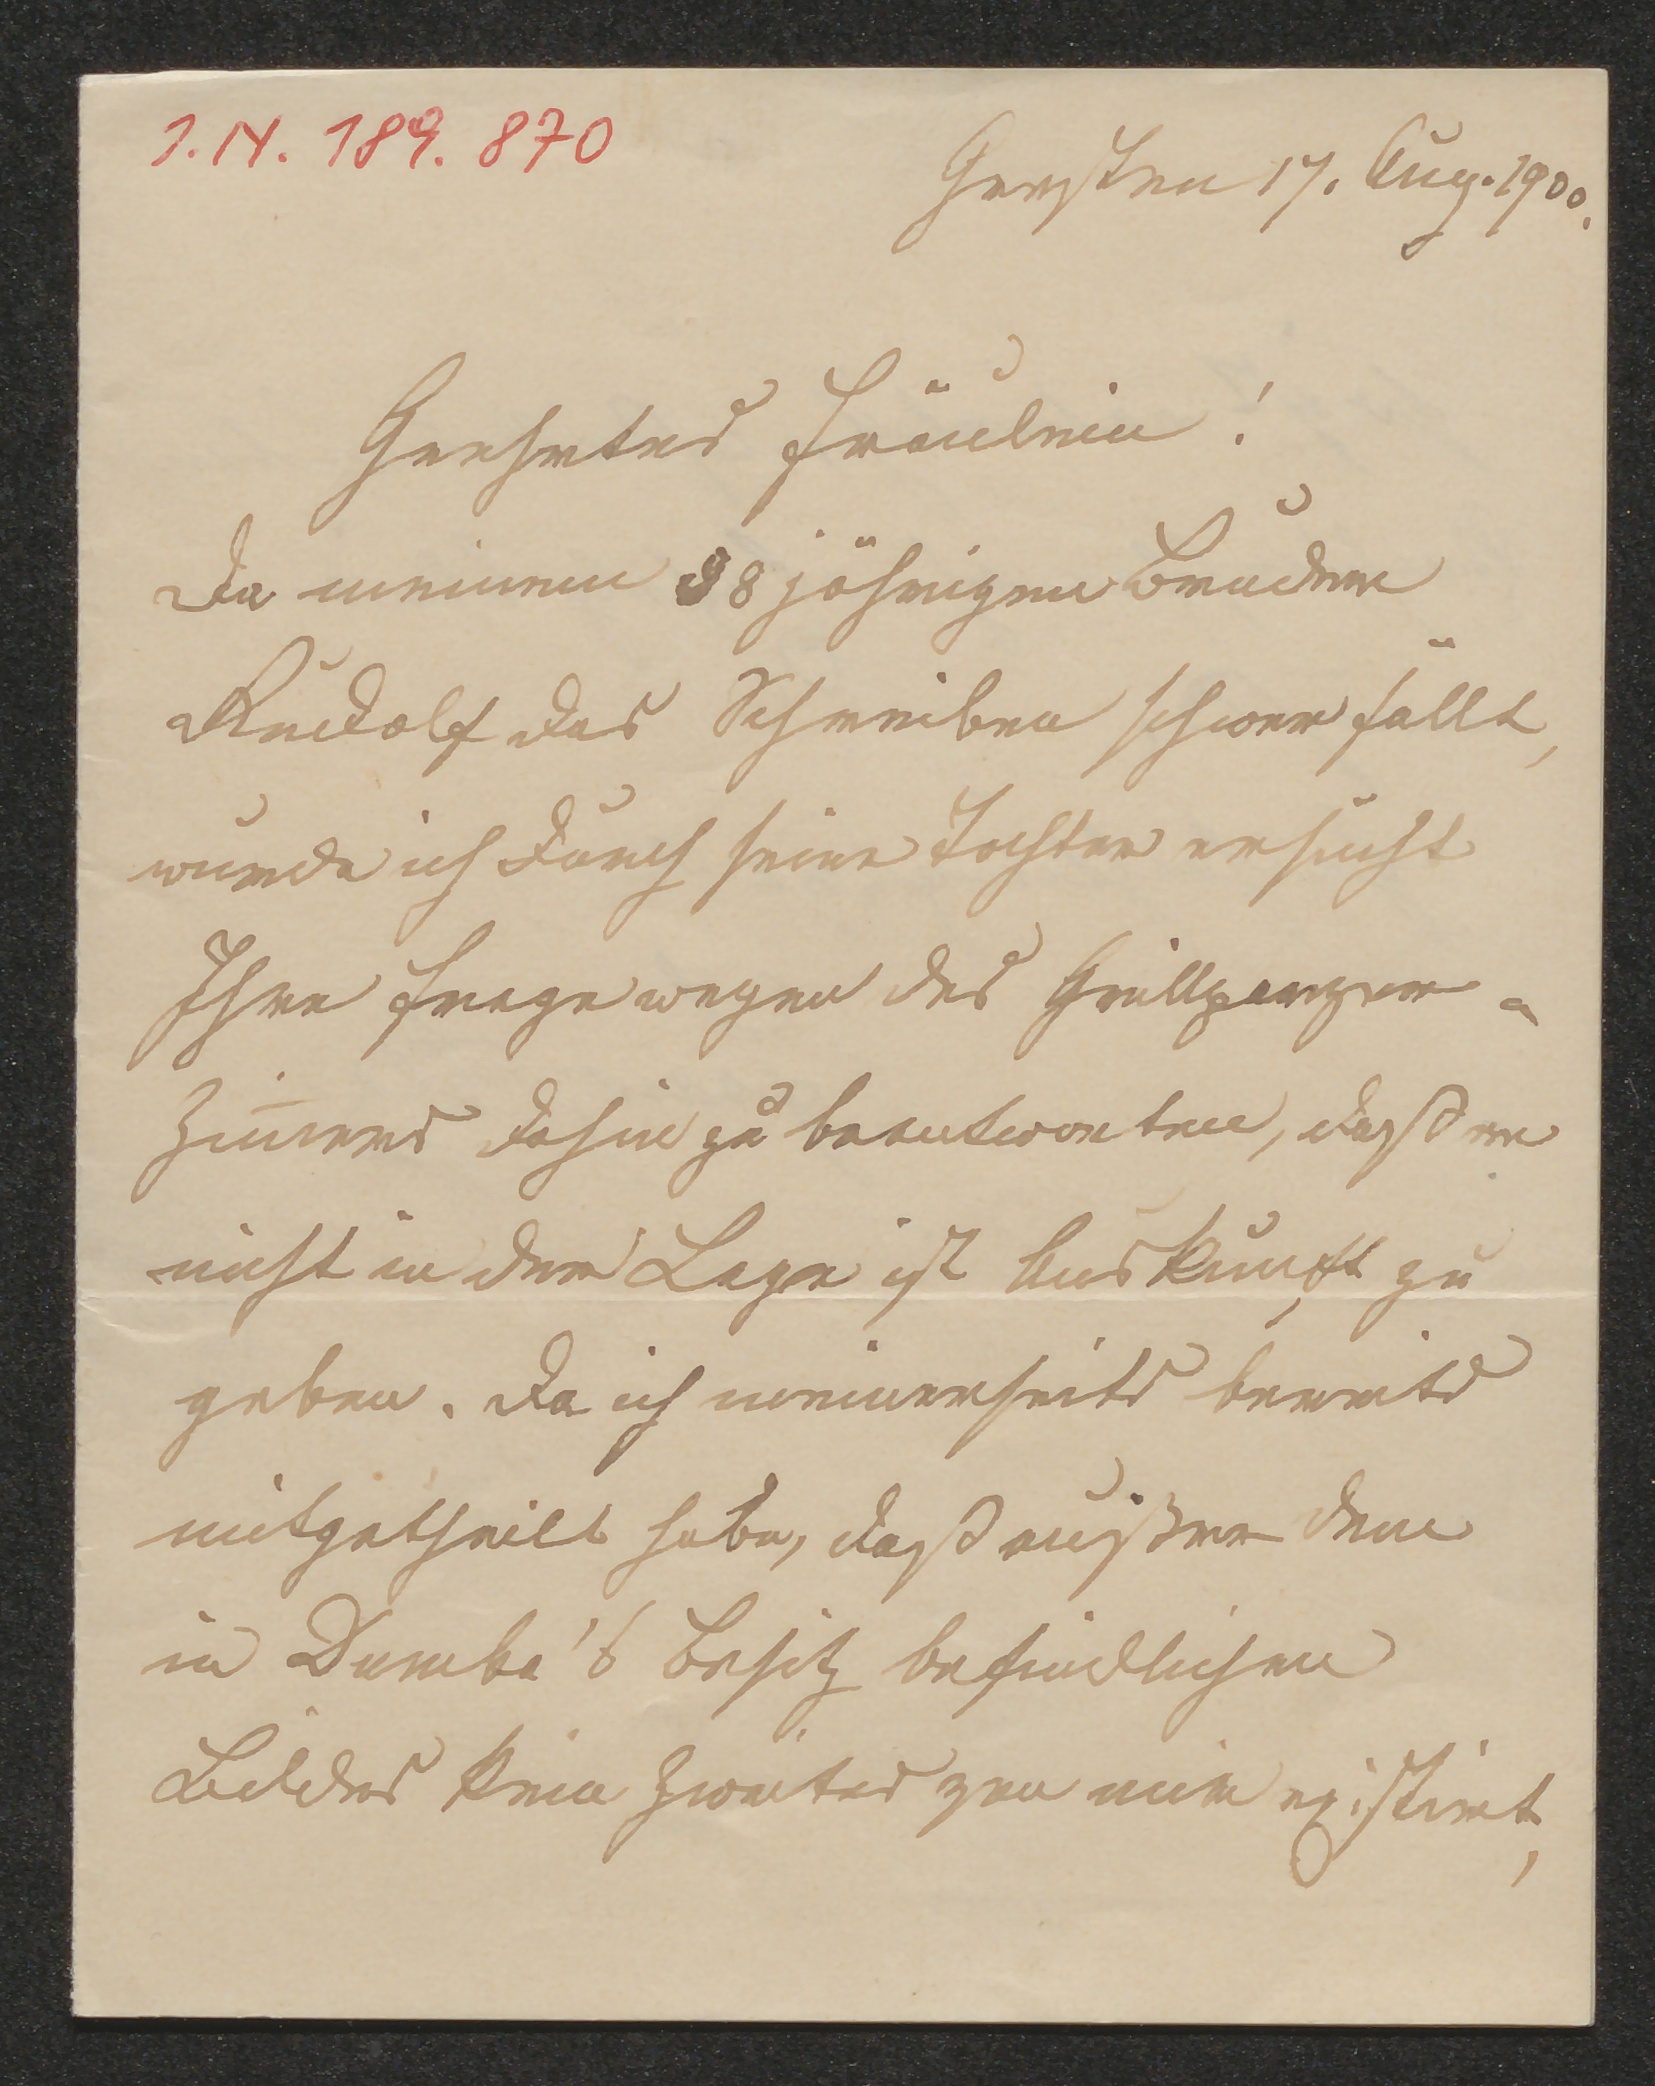 I.N. 189.870
Gersten 17. Aug. 1900.
Geehrtes Fräulein!
Da meinem 88 jährigen Bruder
Rudolf das Schreiben schwer fällt,
wurde ich durch seine Tochter ersucht
Ihre Frage wegen des Grillparzer-
Zimers dahin zu beantworten, daß er
nicht in der Lage ist Auskunft zu
geben. Da ich meinerseits bereits
mitgetheilt habe, daß außer dem
in Dumba's Besitz befindlichen
Bildes kein Zweites von mir existirt,